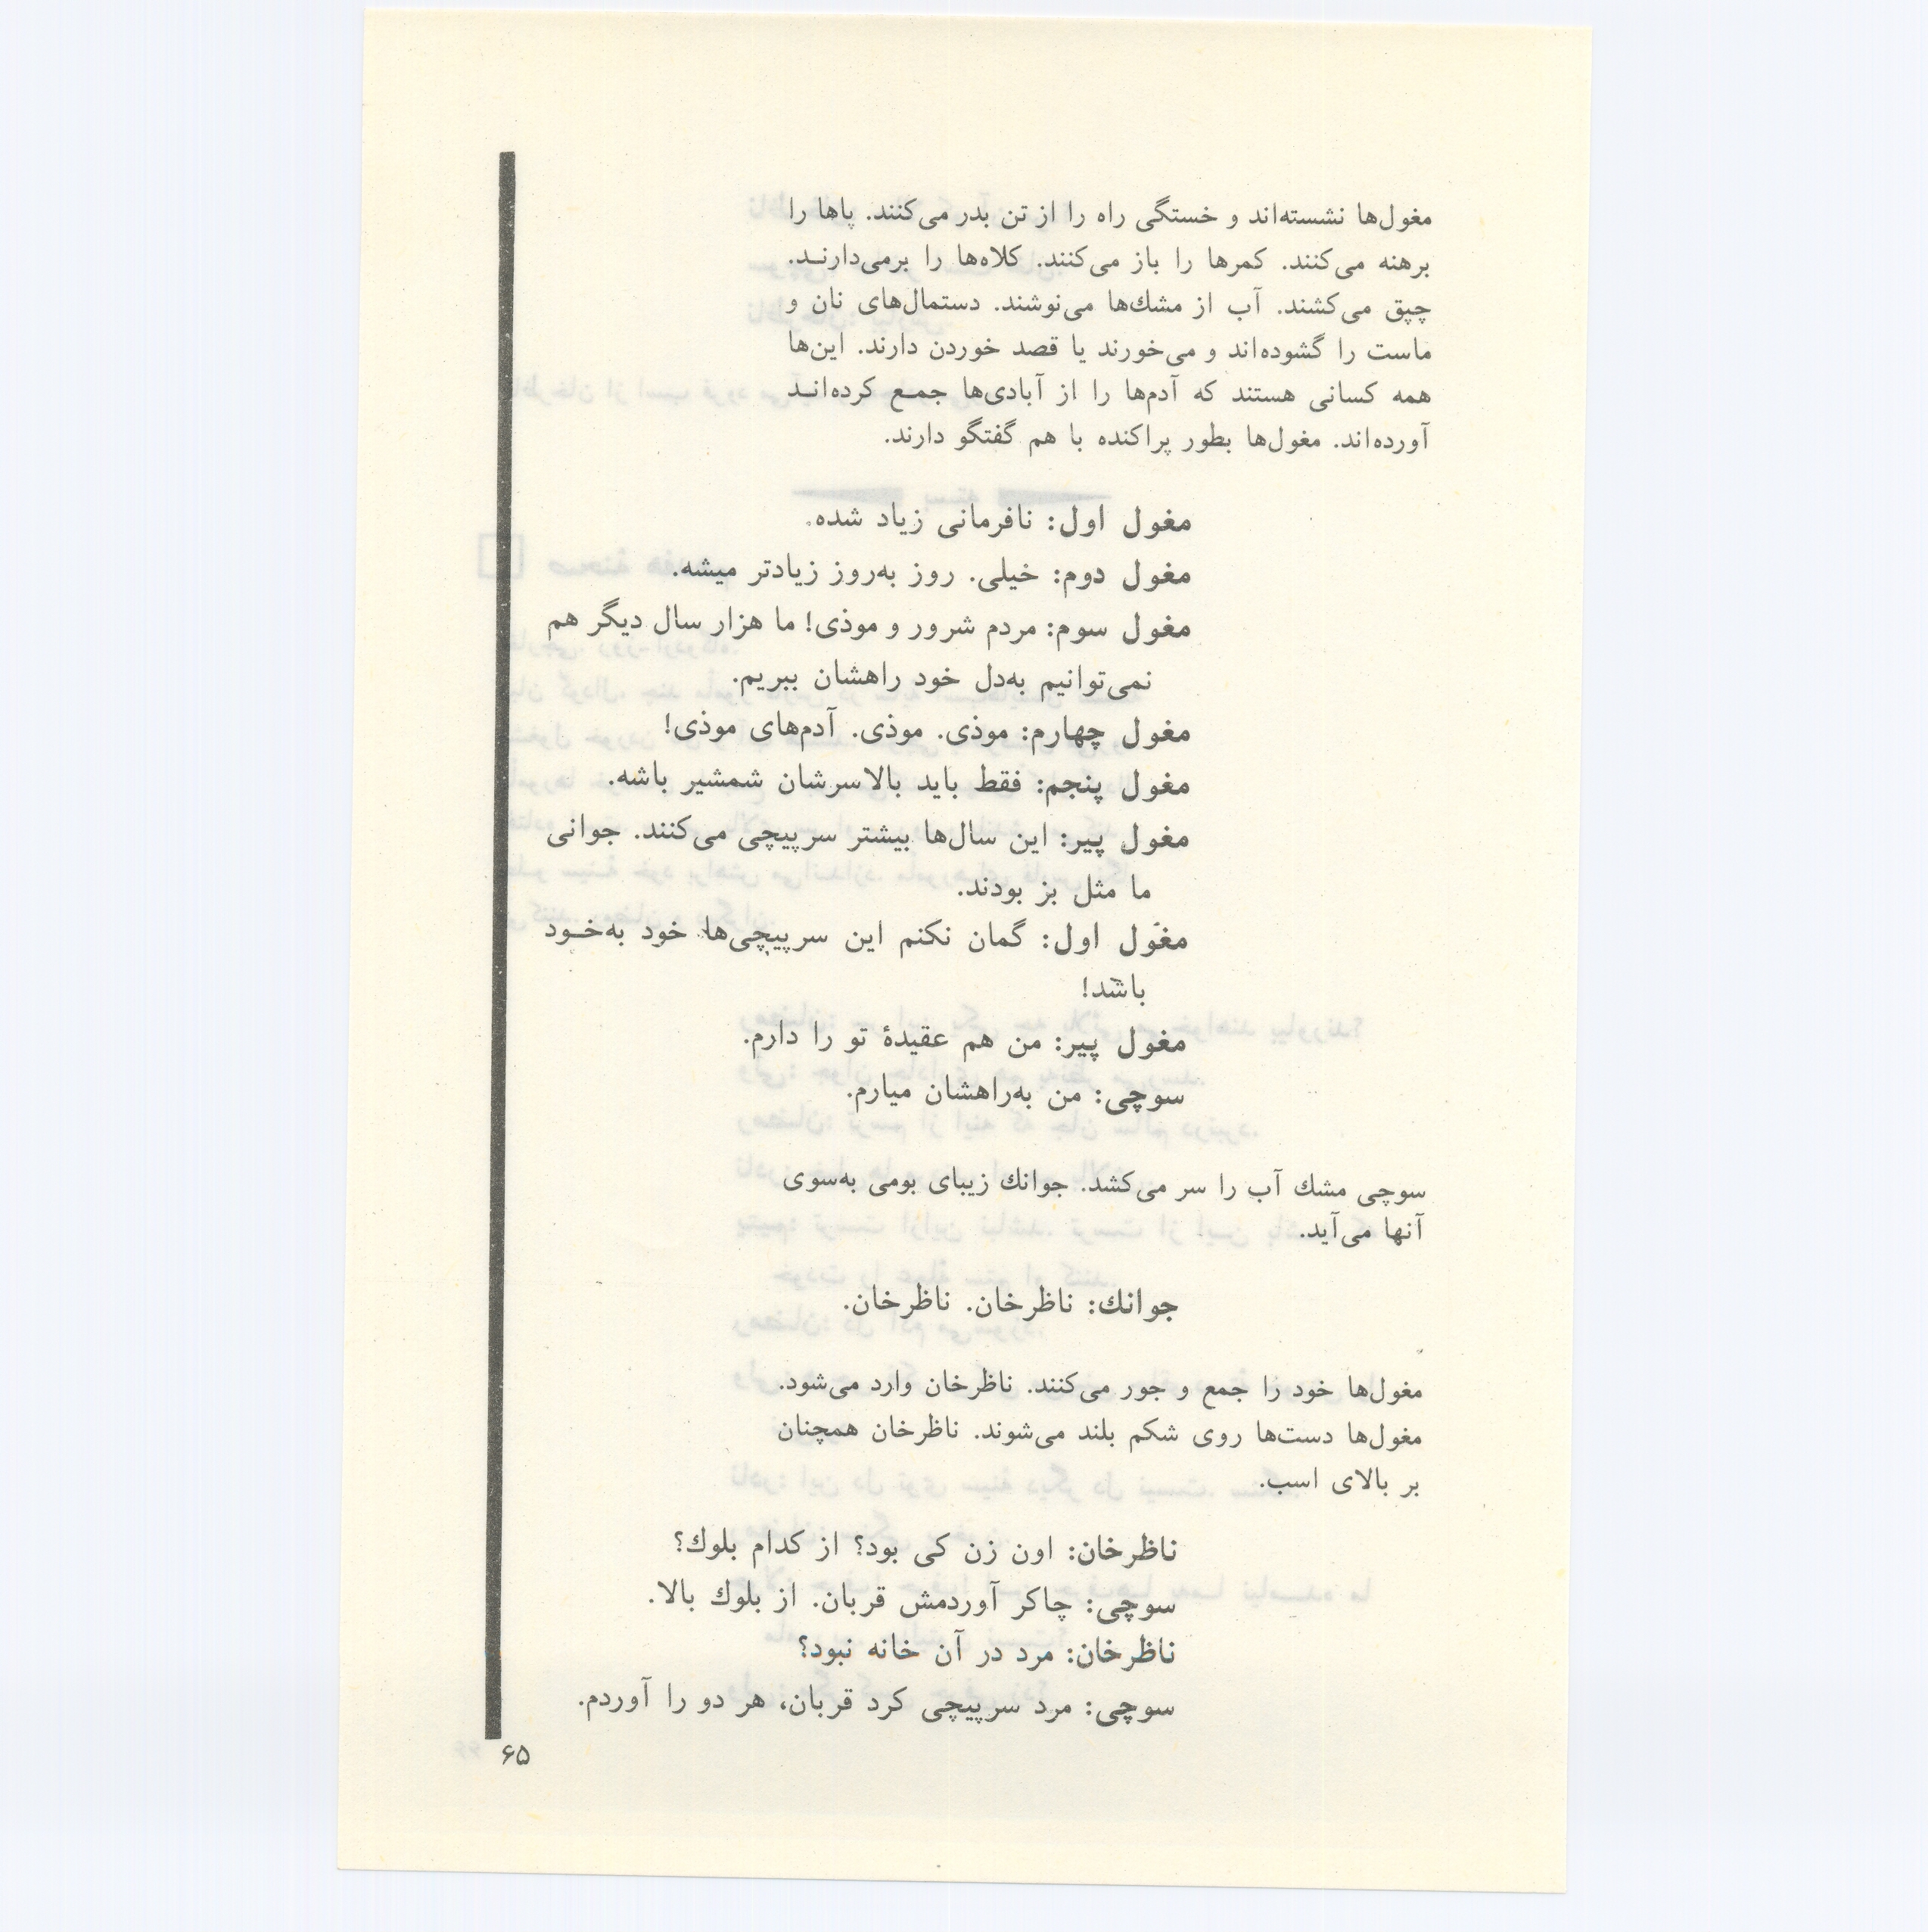 مغول‌ها نشسته‌اند و خستگی راه را از تن بدر می‌کنند. پاها را
برهنه می‌کنند. کمرها را باز می‌کنند. کلاه‌ها را برمی‌دارنـد.
چپق می‌کشند. آب از مشك‌ها می‌نوشند. دستمال‌های نان و
ماست را گشوده‌اند و می‌خورند یا قصد خوردن دارند. این‌ها
همه کسانی هستند که آدم‌ها را از آبادی‌ها جمـع کرده‌انـد
آورده‌اند. مغول‌ها بطور پراکنده با هم گفتگو دارند.
مغول اول: نافرمانی زیاد شده.
مغول دوم: خیلی. روز به‌روز زیادتر میشه.
مغول سوم: مردم شرور و موذی! ما هزار سال دیگر هم
نمی‌توانیم به‌دل خود راهشان ببریم.
مغول چهارم: موذی. موذی. آدم‌های موذی!
مغول پنجم: فقط باید بالاسرشان شمشیر باشه.
مغول پیر: این سال‌ها بیشتر سرپیچی می‌کنند. جوانی
ما مثل بز بودند.
مغول اول: گمان نکنم این سرپیچی‌ها خود به‌خـود
باشد!
مغول پیر: من هم عقیدهٔ تو را دارم.
سوچی: من به‌راهشان میارم.
سوچی مشك آب را سر می‌کشد. جوانك زیبای بومی به‌سوی
آنها می‌آید.
جوانك: ناظرخان. ناظرخان.
مغول‌ها خود را جمع و جور می‌کنند. ناظرخان وارد می‌شود.
مغول‌ها دست‌ها روی شکم بلند می‌شوند. ناظرخان همچنان
بر بالای اسب.
ناظرخان: اون زن کی بود؟ از کدام بلوك؟
سوچی: چاکر آوردمش قربان. از بلوك بالا.
ناظرخان: مرد در آن خانه نبود؟
سوچی: مرد سرپیچی کرد قربان، هر دو را آوردم.
۶۵